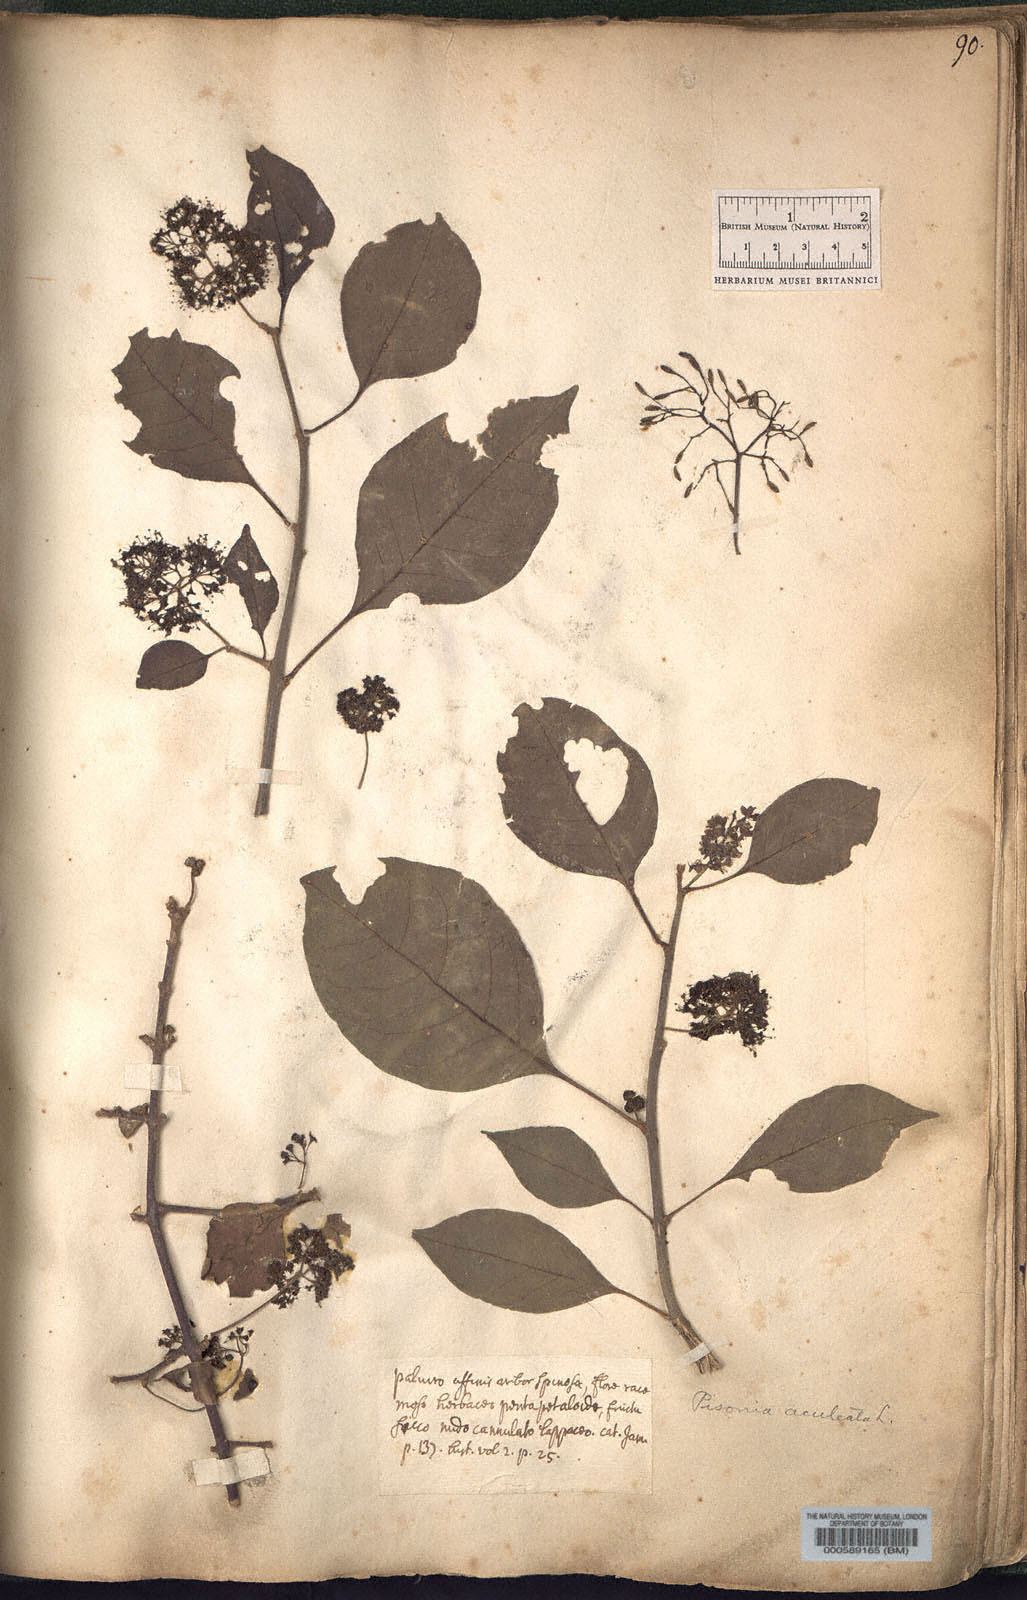 90.
1 2
BRITISH MUSEUM (NATURAL HISTORY)
1 2 3 4 5
HERBARIUM MUSEI BRITANNICI
paliuro affinis arbor spinosa, flore race
moso herbaceo pentapetaloide, fructu
sicco nudo cannulato lappaceo. cat. Jam.
p. 137. hist. vol 2. p. 25.
Pisonia aculeata L.
THE NATURAL HISTORY MUSEUM, LONDON
DEPARTMENT OF BOTANY
000589165 (BM)